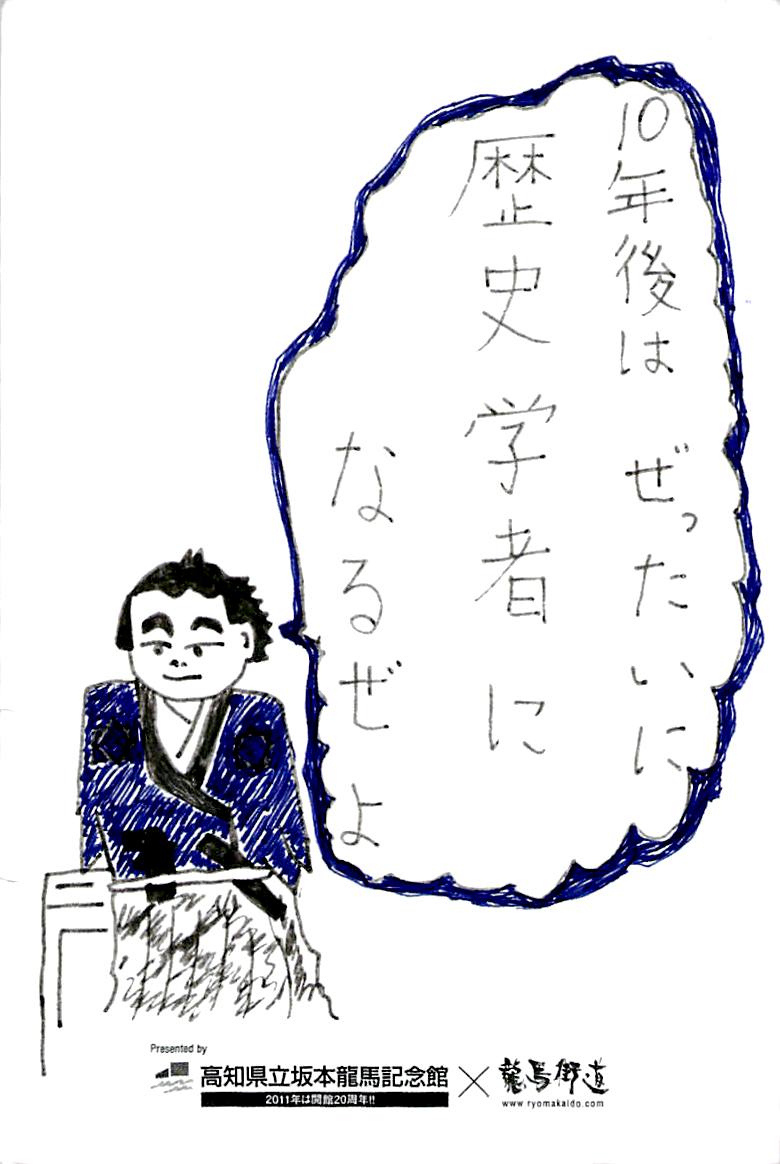 10年後は ぜったいに
歴史学者に
なるぜよ
Presented by
高知県立坂本龍馬記念館
2011年は開館20周年!!
×
龍馬街道
www.ryomakaido.com